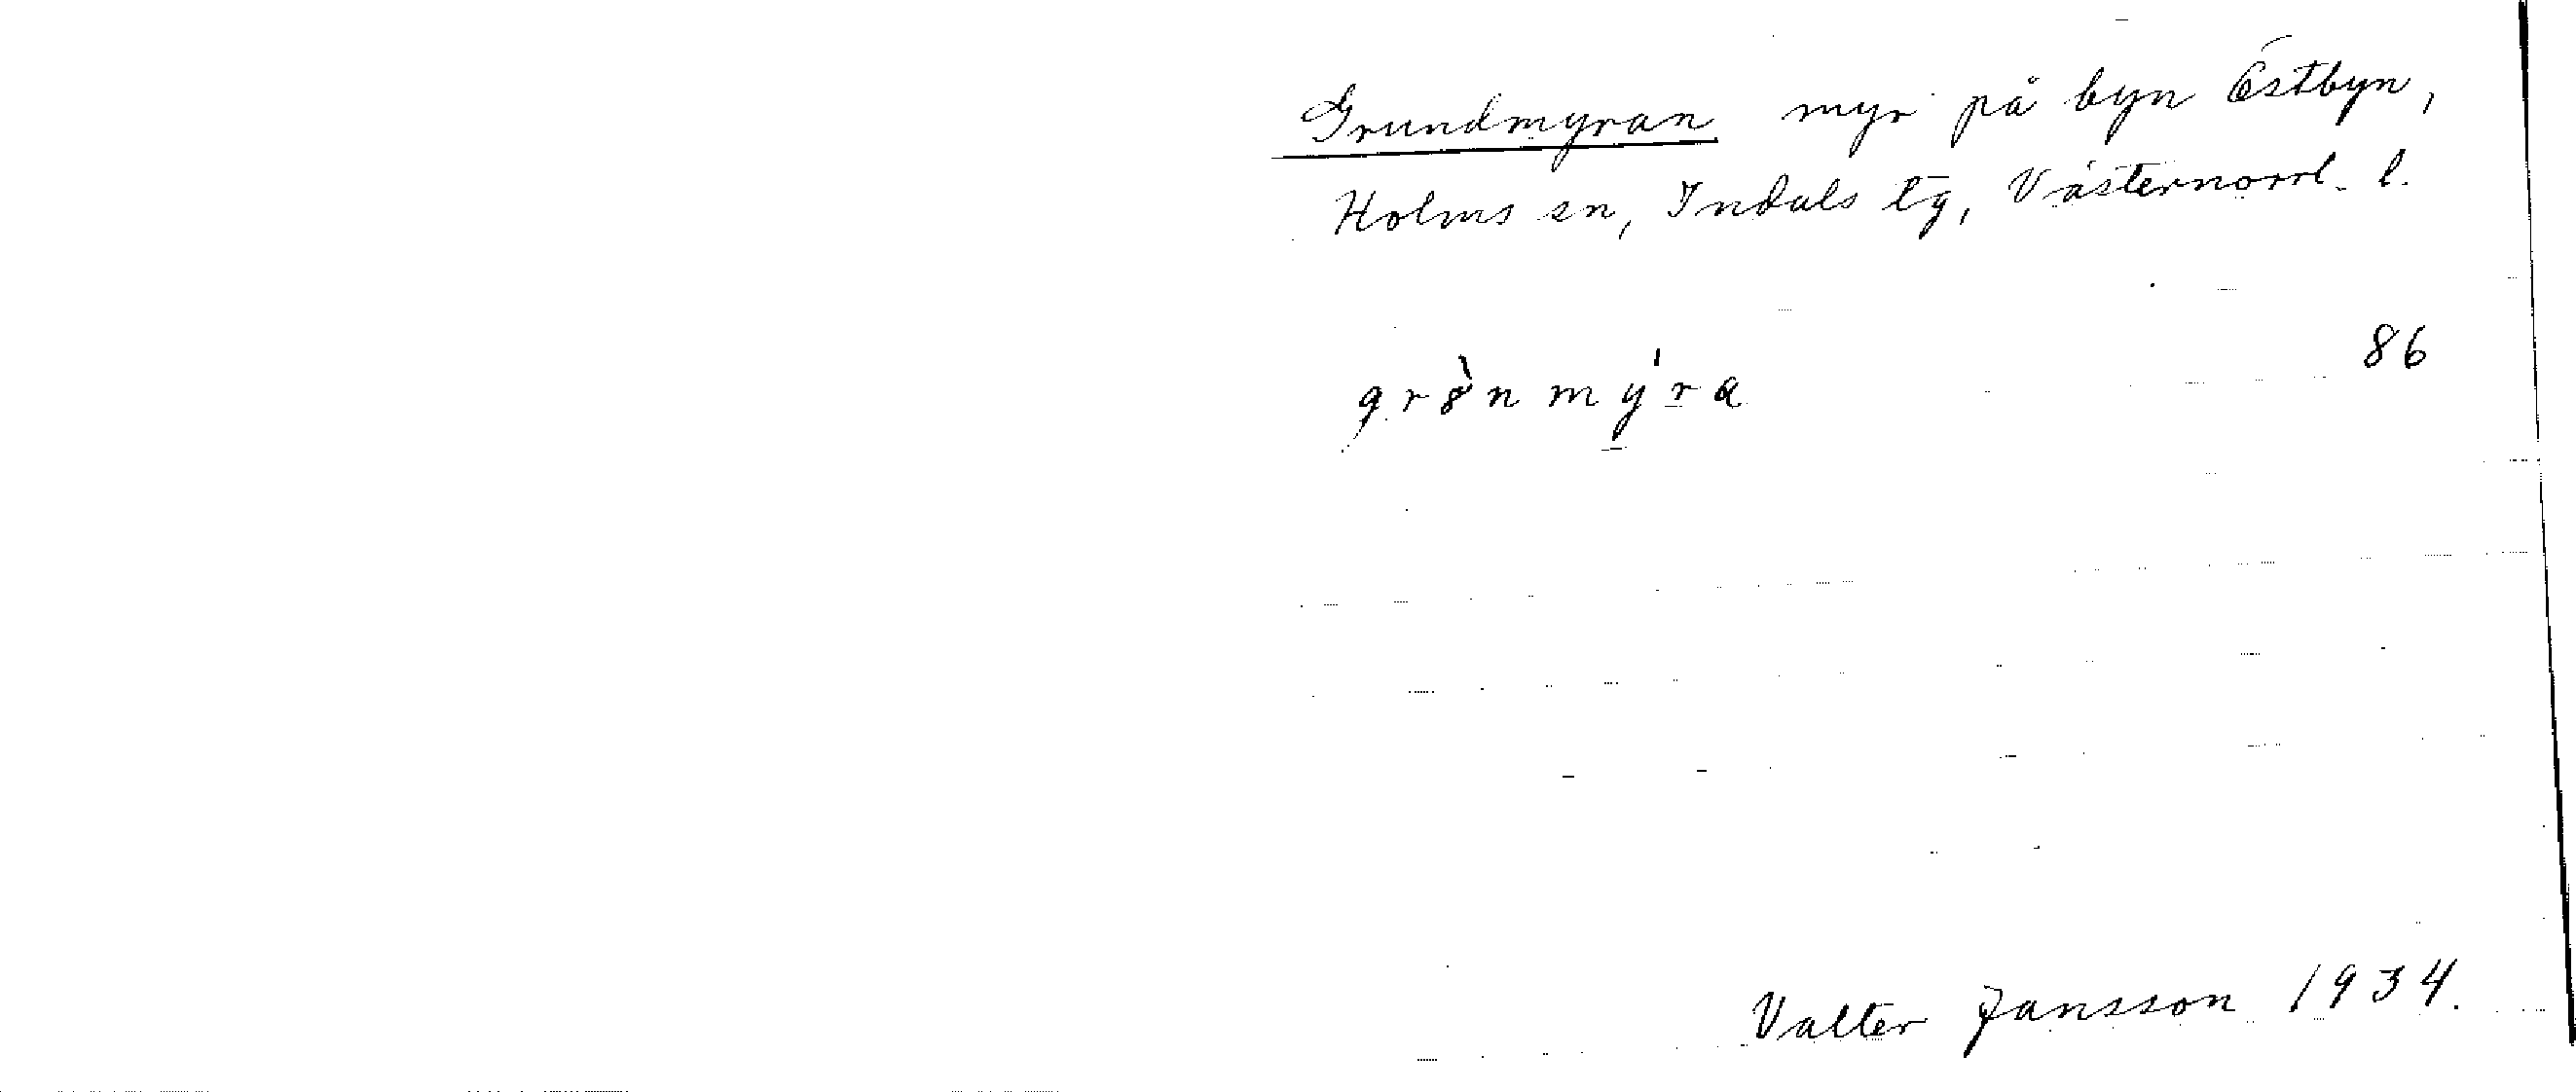 Grundmyran myr på byn Östbyn,
Holms sn, Indals tg, Västernorrl. l.
86
gr8̀nmýra
Valter Jansson 1934.